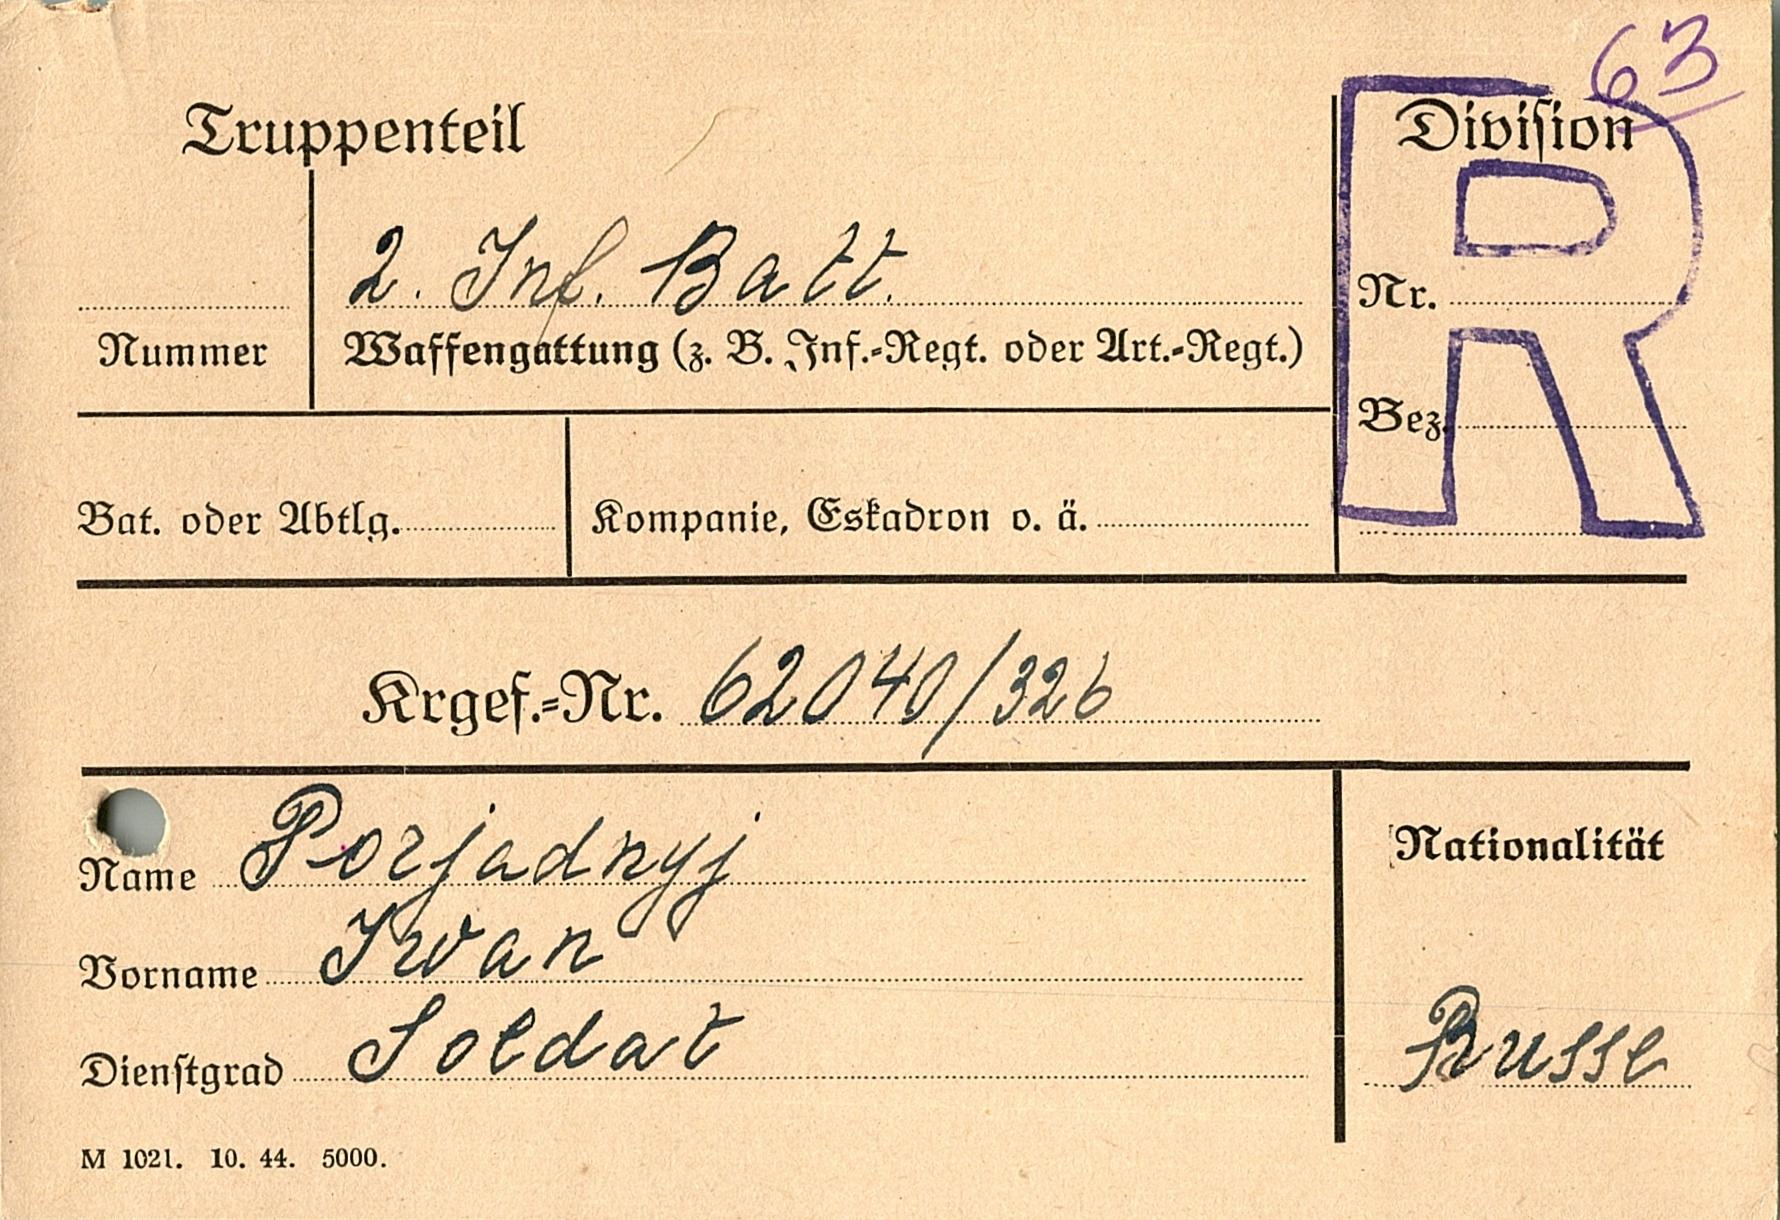 63
Truppenteil
Division
2. Inf. Batt.
Nr.
Nummer
Waffengattung (z. B. Inf.-Regt. oder Art.-Regt.)
Bez.
Bat. oder Abtlg.
Kompanie, Eskadron o. ä.
R
Krgef.-Nr. 62040/326
Name Porjadnyj
Nationalität
Vorname Iwan
Dienstgrad Soldat
Russe
M 1021. 10. 44. 5000.